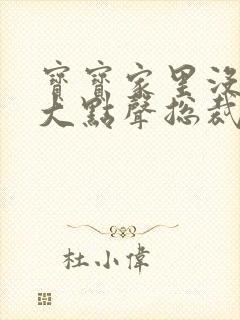 寶寶家里沒
大點聲總裁
杜小偉